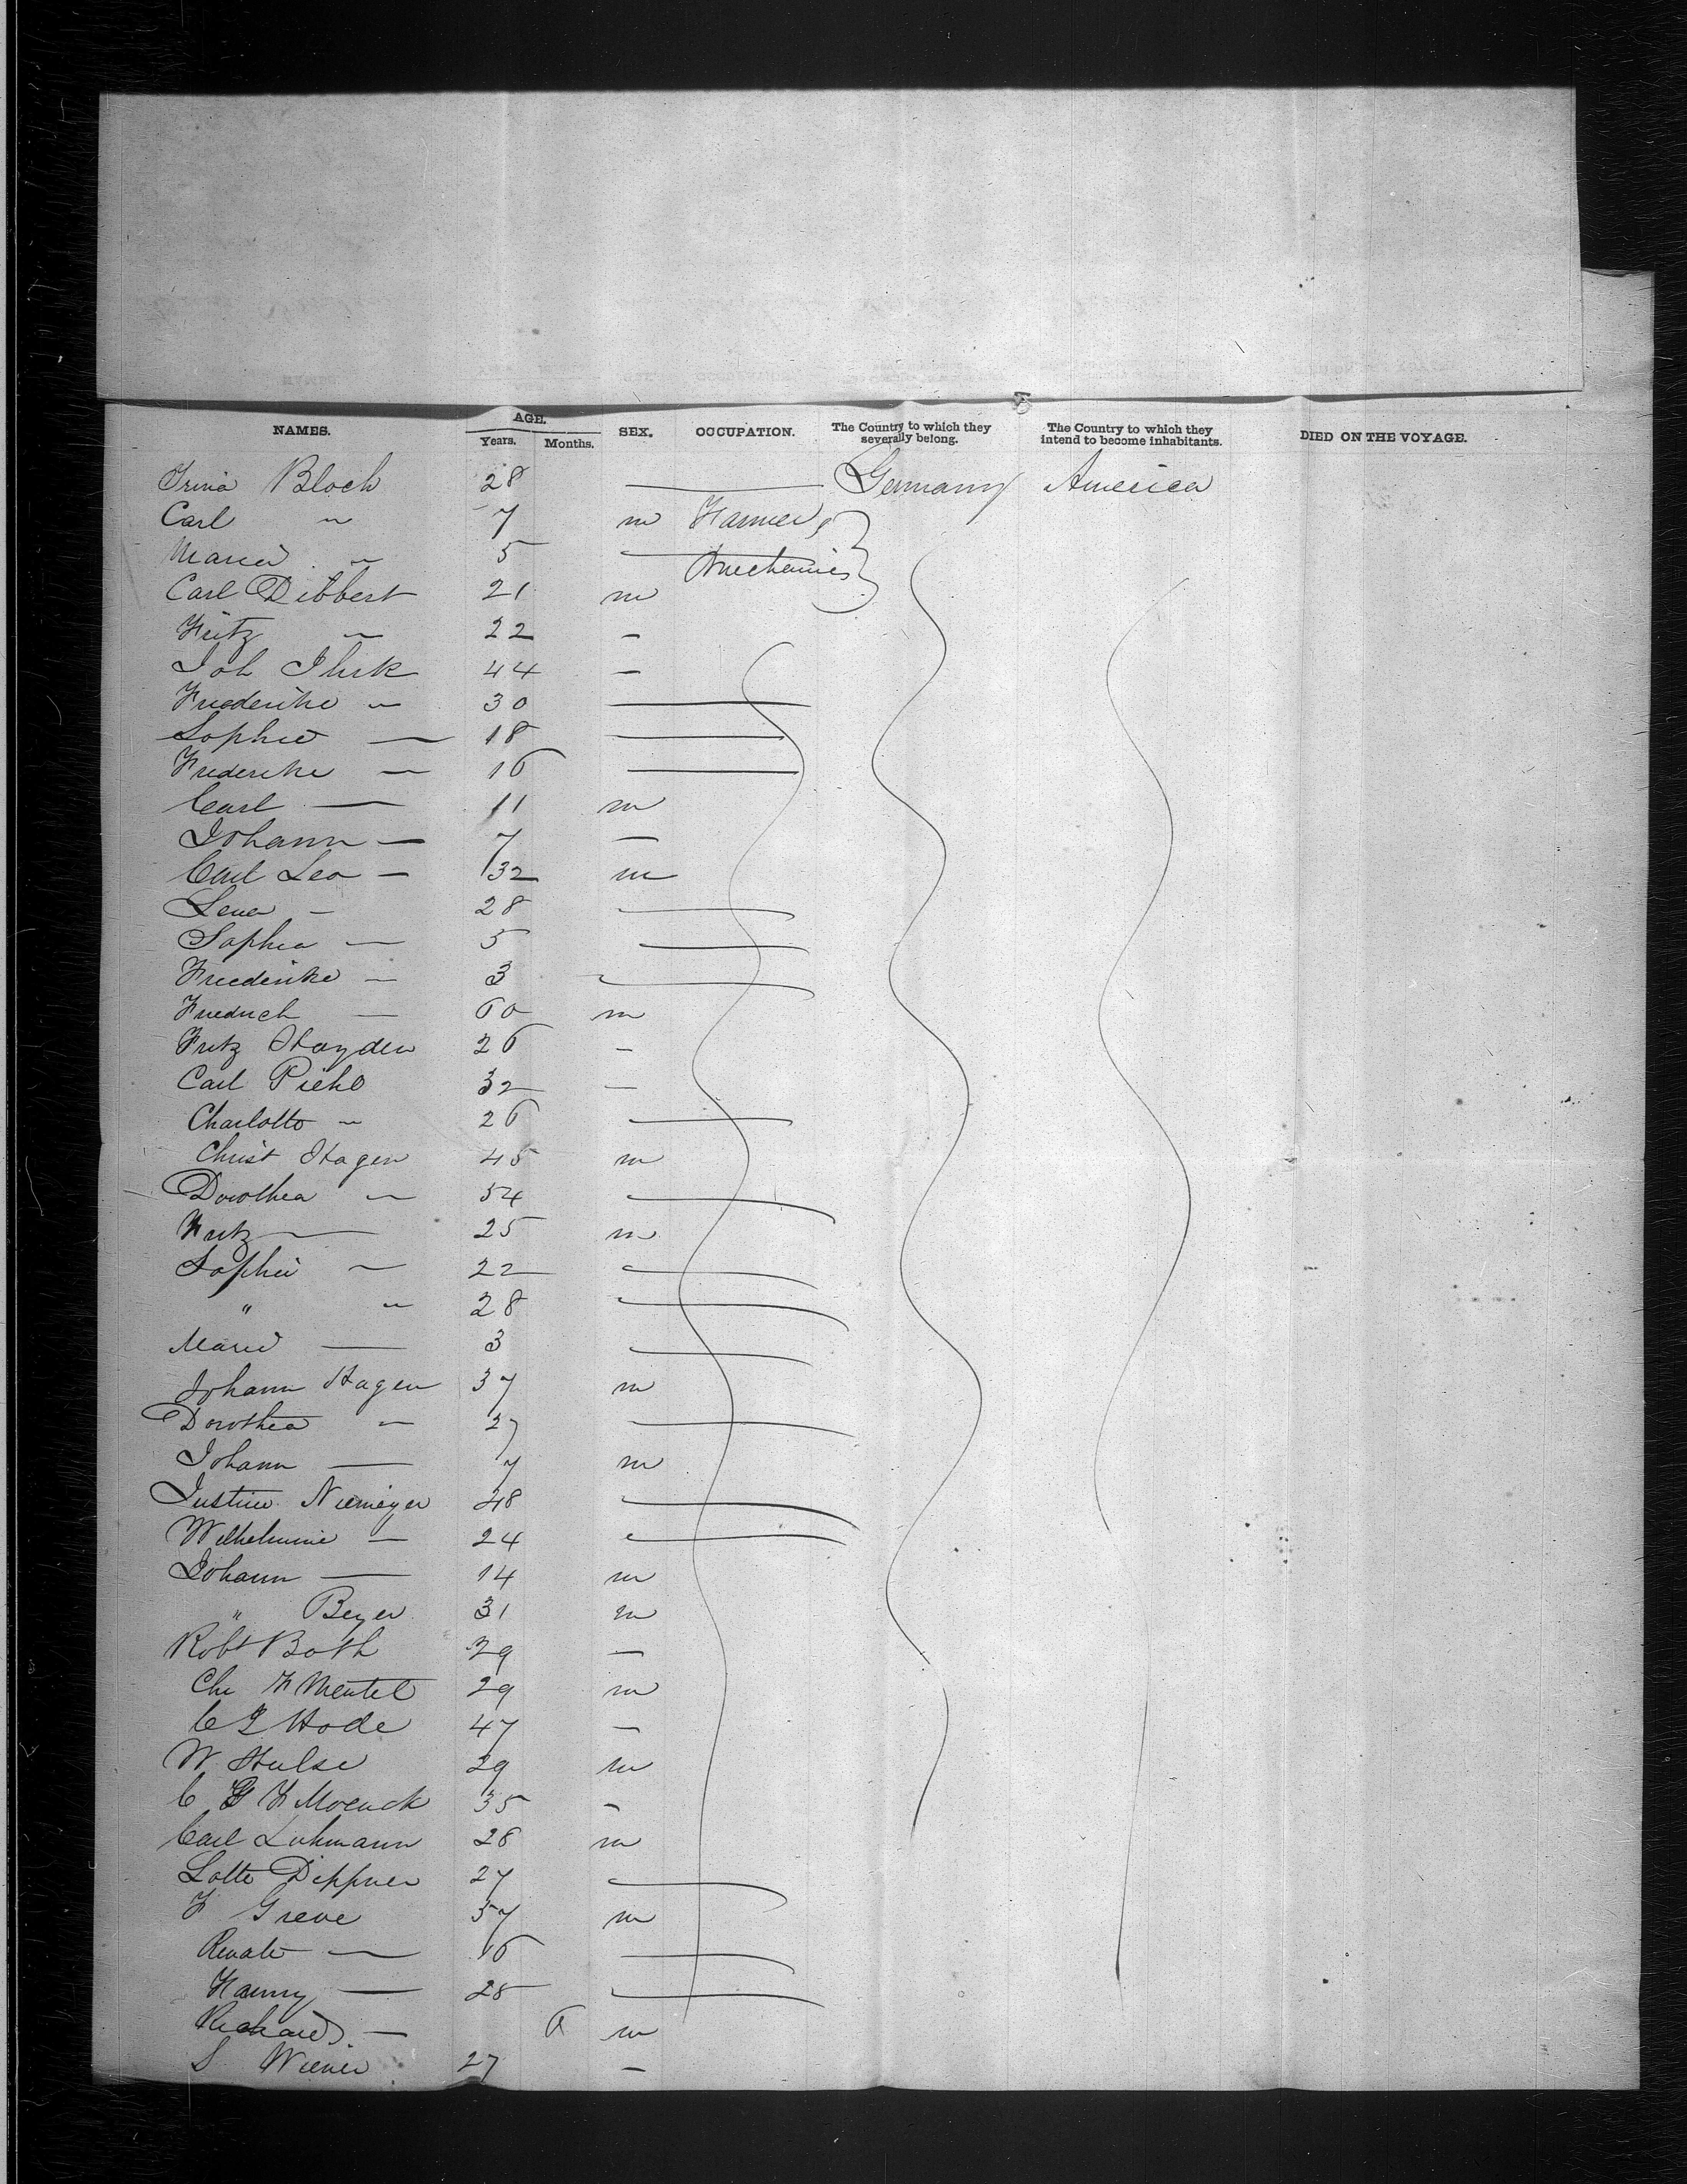 5
NAMES. AGE. Years. Months. SEX. OCCUPATION. The Country to which they severally belong. The Country to which they intend to become inhabitants. DIED ON THE VOYAGE.
Bloch 28 — Germany America
Carl " 7 m Farmers
Maria " 5 — & mechanics
Carl Dibbert 21 m
Fritz " 22 –
Joh 44 –
Friederike " 30 —
Sophie — 18 —
Frederike — 16 —
Carl — 11 m
Johann — 7 –
Carl Leo — 32 m
Lena – 28 —
Sophia — 5 —
Friederike – 3 —
Friedrich — 60 m
Fritz Hayden 26 –
Carl Piehl 32 –
Charlotte " 26 —
Christ Hagen 45 m
Dorothea " 54 —
Fritz — 25 m
Sophie — 22 —
" " 28 —
Marie — 3 —
Johann Hagen 37 m
Dorothea " 27 —
Johann — 7 m
Justine Niemeyer 48 —
Wilhelmine — 24 —
Johann — 14 m
" Beyer 31 m
Robt Both 29 –
Chr F Mentel 29 m
C Hode 47 –
W. Hulse 29 m
C G F Moenck 35 –
Carl Luhmann 28 m
Lotte Dippner 27 —
F Greve 37 m
Renate — 16 —
Fanny — 28 —
Richard — 6 m
S. Wiener 27 –